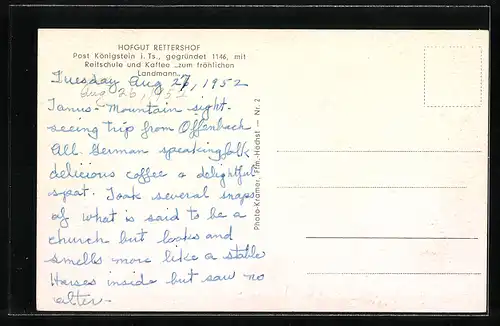 HOFGUT RETTERSHOF
Post Königstein i. Ts., gegründet 1146, mit
Reitschule und Kaffee „zum fröhlichen
Landmann"
Tuesday Aug 27, 1952
Aug 26, 1952
Tanus-Mountain sight-
seeing trip from Offenbach
All German speaking folk
delicious coffee & delightful
spot. Took several snaps
of what is said to be a
church but looks and
smells more like a stable
Horses inside but saw no
alter.
Photo-Kramer, Ffm.-Höchst — Nr. 2